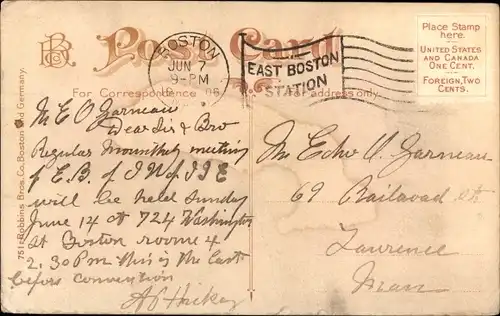 Post Card
For Correspondence
For address only
BOSTON
JUN 7
9-PM
EAST BOSTON
STATION
Place Stamp
here.
UNITED STATES
AND CANADA
ONE CENT.
FOREIGN, TWO
CENTS.
751-Robbins Bros. Co. Boston and Germany.
Mr E O Garneau
Dear Sir & Bro
Regular Mounthly meeting
of E.B. of
will be held Sunday
June 14 at 724 Washington
st Boston roome 4
2.30 Pm This is the Last
before convention
Mr Echo O. Garneau
69 Railroad st
Lawrence
Mass